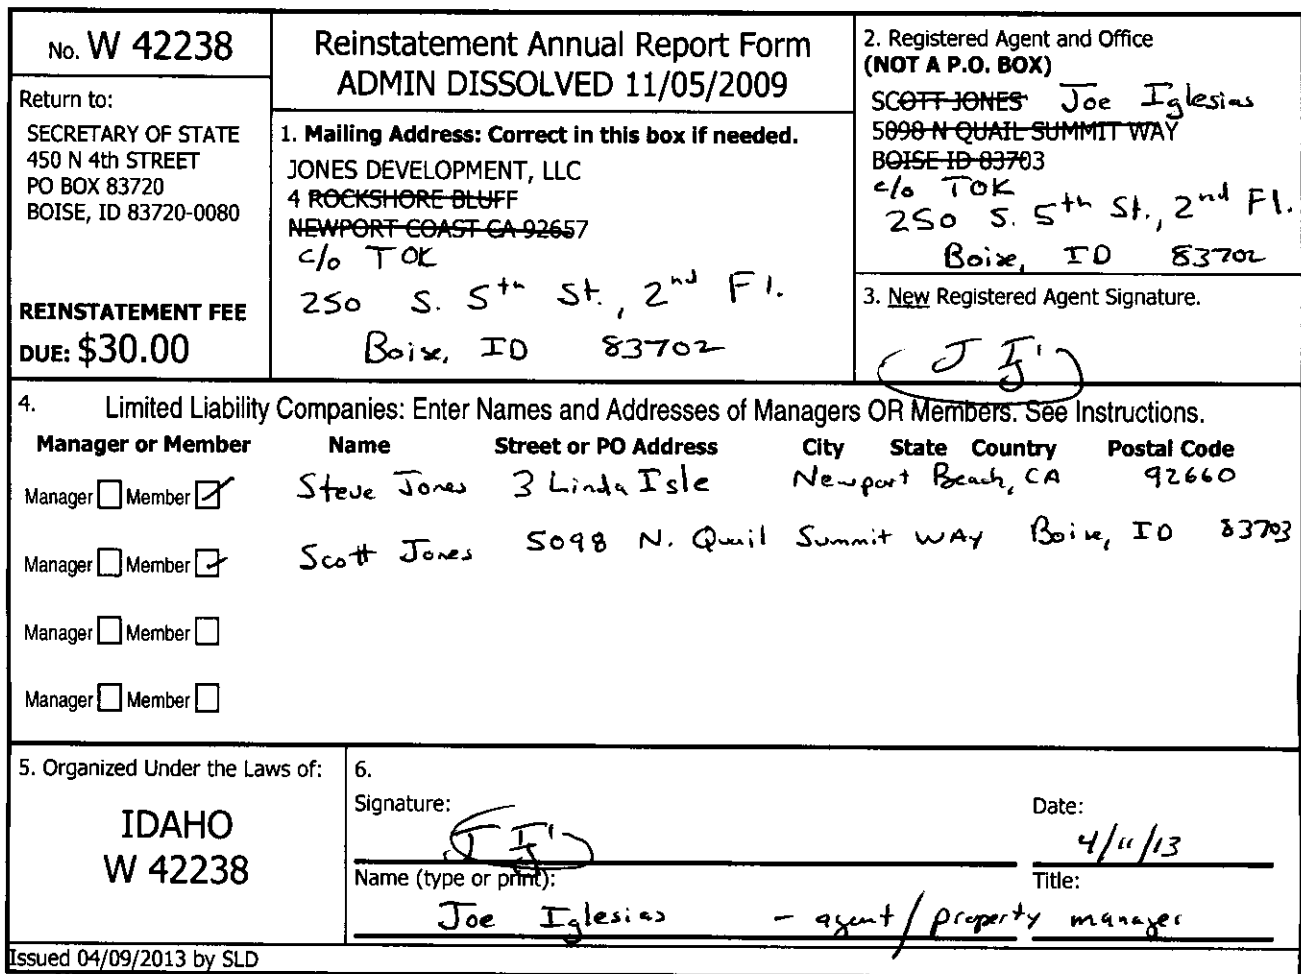 No. W 42238
Return to:
SECRETARY OF STATE
450 N 4th STREET
PO BOX 83720
BOISE, ID 83720-0080
REINSTATEMENT FEE
DUE: $30.00
Reinstatement Annual Report Form
ADMIN DISSOLVED 11/05/2009
1. Mailing Address: Correct in this box if needed.
JONES DEVELOPMENT, LLC
4 ROCKSHORE BLUFF
NEWPORT COAST CA 92657
c/o TOK
250 S. 5th St., 2nd Fl.
Boise, ID 83702
2. Registered Agent and Office
(NOT A P.O. BOX)
SCOTT JONES Joe Iglesias
5098 N QUAIL SUMMIT WAY
BOISE ID 83703
c/o TOK
250 S. 5th St., 2nd Fl.
Boise, ID 83702
3. New Registered Agent Signature.
J I
4. Limited Liability Companies: Enter Names and Addresses of Managers OR Members. See Instructions.
Manager or Member Name Street or PO Address City State Country Postal Code
Manager Member Steve Jones 3 Linda Isle Newport Beach, CA 92660
Manager Member Scott Jones 5098 N. Quail Summit WAY Boise, ID 83703
Manager Member
Manager Member
5. Organized Under the Laws of:
IDAHO
W 42238
6.
Signature: Date:
J I 4/11/13
Name (type or print): Title:
Joe Iglesias - agent/property manager
Issued 04/09/2013 by SLD